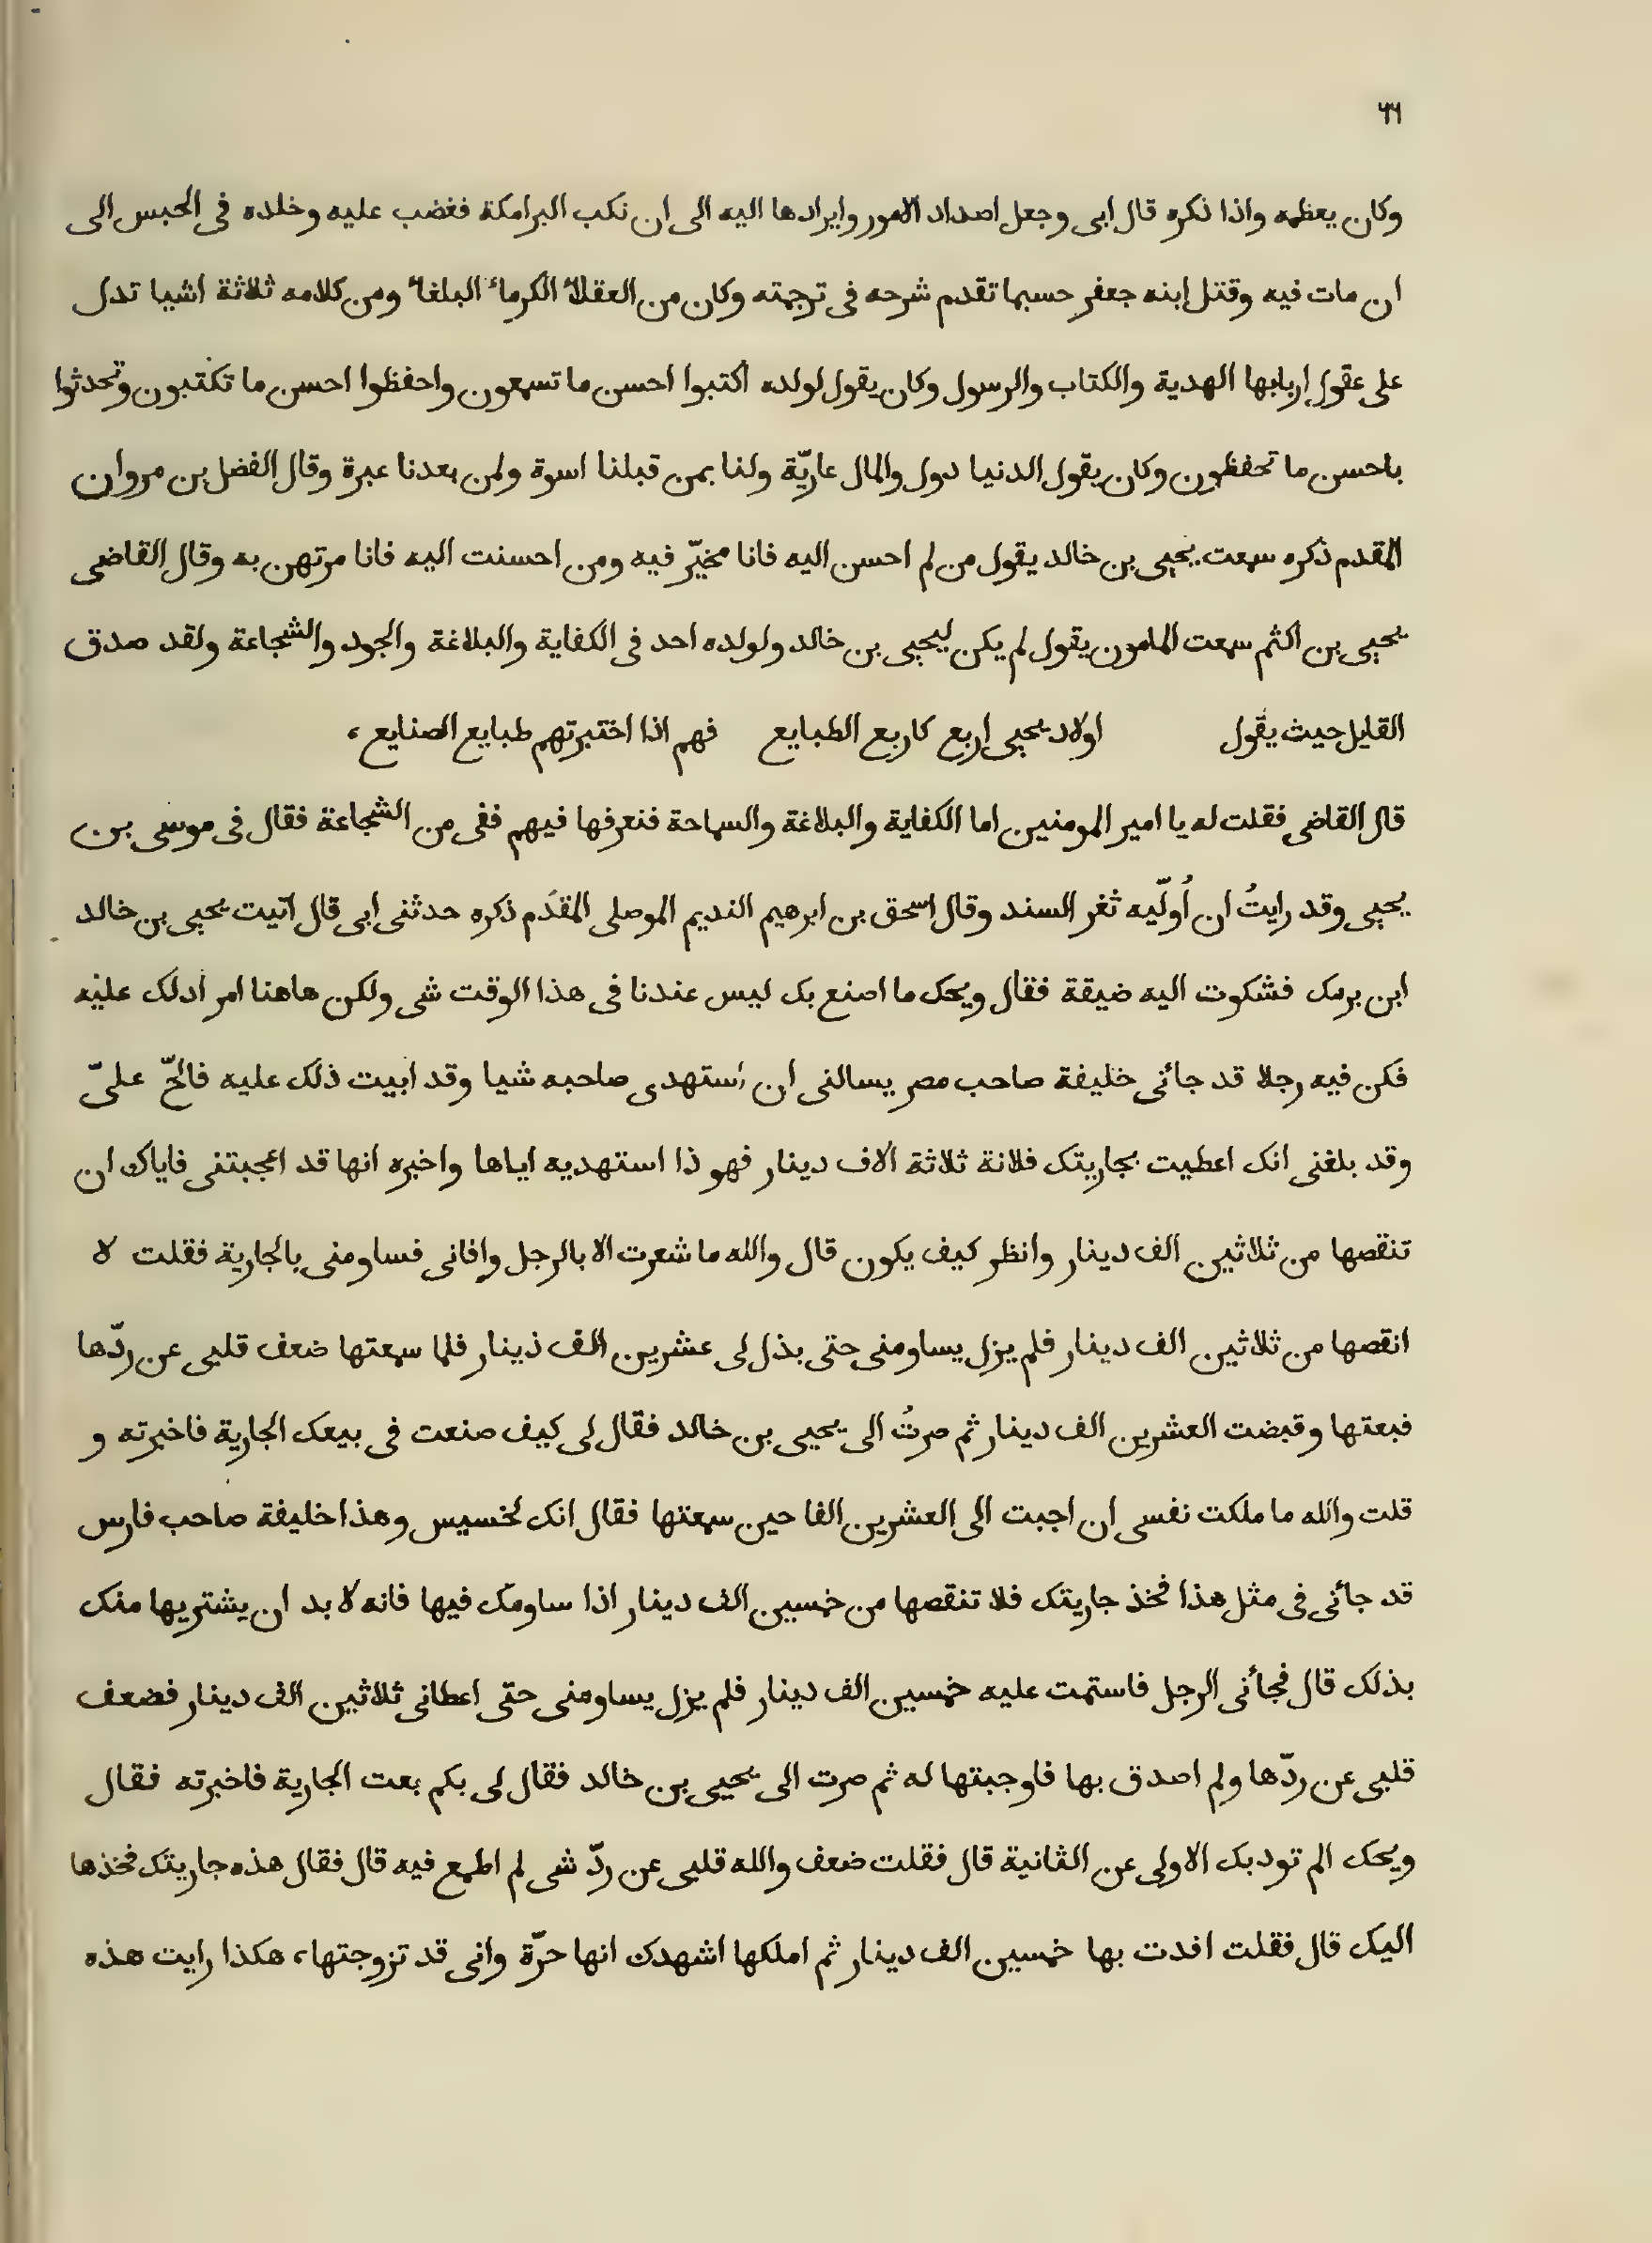 ٦٦
وكان يعظمه واذا ذكره قال ابى وجعل اصدار الامور وايرادها اليه الى ان نكب البرامكة فغضب عليه وخلده فى الحبس الى
ان مات فيه وقتل ابنه جعفر حسبما تقدم شرحه فى ترجمته وكان من العقلاء الكرماء البلغاء ومن كلامه ثلاثة اشيا تدل
على عقول اربابها الهدية والكتاب والرسول وكان يقول لولده اكتبوا احسن ما تسمعون واحفظوا احسن ما تكتبون وتحدثوا
باحسن ما تحفظون وكان يقول الدنيا دول والمال عاريّة ولنا بمن قبلنا اسوة ولمن بعدنا عبرة وقال الفضل بن مروان
المقدم ذكره سمعت يحيى بن خالد يقول من لم احسن اليه فانا مخيّر فيه ومن احسنت اليه فانا مرتهن به وقال القاضى
يحيى بن اكثم سمعت المامون يقول لم يكن ليحيى بن خالد ولولده احد فى الكفاية والبلاغة والجود والشجاعة ولقد صدق
القايل حيث يقول اولاد يحيى اربع كاربع الطبايع فهم اذا اختبرتهم طبايع الصنايع،
قال القاضى فقلت له يا امير المومنين اما الكفاية والبلاغة والسماحة فنعرفها فيهم ففى من الشجاعة فقال فى موسى بن
يحيى وقد رايتُ ان أُولّيه ثغر السند وقال اسحق بن ابرهيم النديم الموصلى المقدَم ذكره حدثنى ابى قال اتيت يحيى بن خالد
ابن برمك فشكوت اليه ضيقة فقال ويحك ما اصنع بك ليس عندنا فى هذا الوقت شى ولكن هاهنا امر أدلك عليه
فكن فيه رجلا قد جائنى خليفة صاحب مصر يسالنى ان أستهدى صاحبه شيا وقد ابيت ذلك عليه فالحّ علىّ
وقد بلغنى انك اعطيت بجاريتك فلانة ثلاثة الاف دينار فهو ذا استهديه اياها واخبره انها قد اعجبتنى فاياك ان
تنقصها من ثلاثين الف دينار وانظر كيف يكون قال والله ما شعرت الا بالرجل وافانى فساومنى بالجارية فقلت لا
انقصها من ثلاثين الف دينار فلم يزل يساومنى حتى بذل لى عشرين الف دينار فلما سمعتها ضعف قلبى عن ردّها
فبعتها وقبضت العشرين الف دينار ثم صرتُ الى يحيى بن خالد فقال لى كيف صنعت فى بيعك الجارية فاخبرته و
قلت والله ما ملكت نفسى ان اجبت الى العشرين الفا حين سمعتها فقال انك لخسيس وهذا خليفة صاحب فارس
قد جائنى فى مثل هذا فخذ جاريتك فلا تنقصها من خمسين الف دينار اذا ساومك فيها فانه لا بد ان يشتريها منك
بذلك قال فجائنى الرجل فاستمت عليه خمسين الف دينار فلم يزل يساومنى حتى اعطانى ثلاثين الف دينار فضعف
قلبى عن ردّها ولم اصدق بها فاوجبتها له ثم صرت الى يحيى بن خالد فقال لى بكم بعت الجارية فاخبرته فقال
ويحك الم تودبك الاولى عن الثانية قال فقلت ضعف والله قلبى عن ردّ شى لم اطمع فيه قال فقال هذه جاريتك فخذها
اليك قال فقلت افدت بها خمسين الف دينار ثم املكها اشهدك انها حرّة وانى قد تزوجتها، هكذا رايت هذه